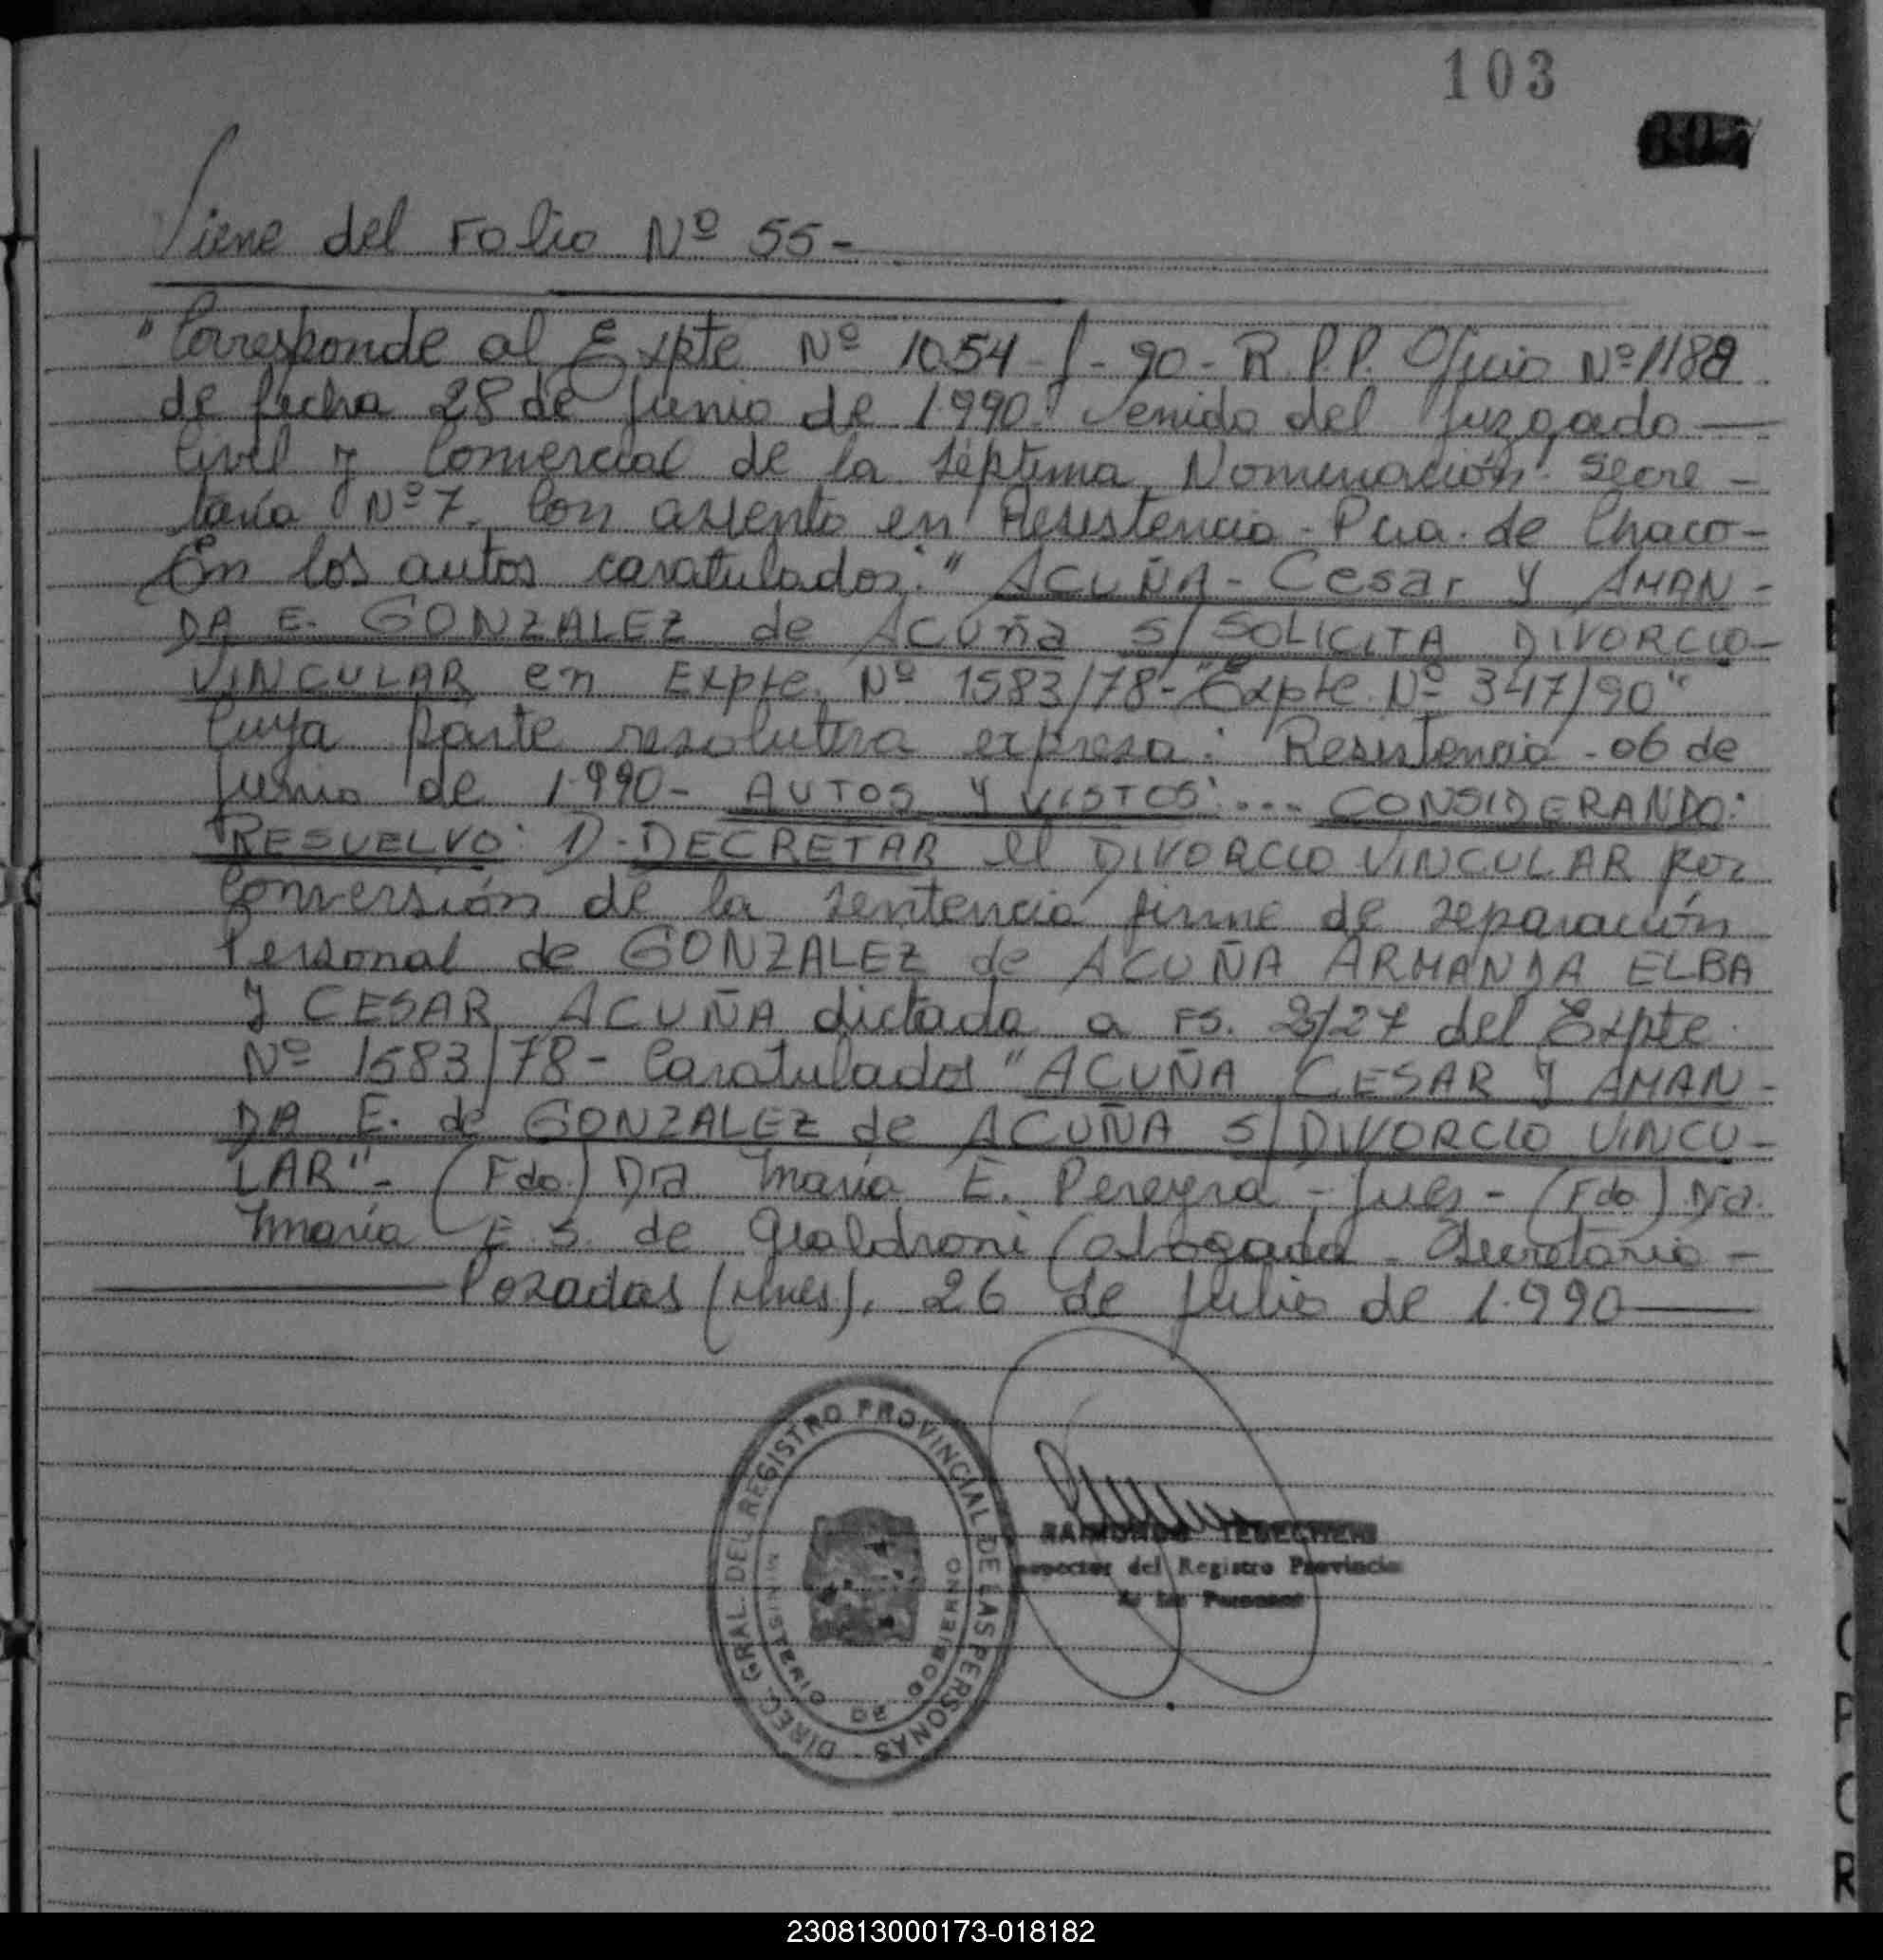 103
Viene del Folio Nº 55-
"Corresponde al Expte Nº 1054-J-90-R.P.P. Oficio Nº 1188
de fecha 28 de Junio de 1.990. Venido del Juzgado
Civil y Comercial de la Séptima Nominación. Secre-
taría Nº 7. Con asiento en Resistencia- Pcia. de Chaco-
En los autos caratulados: "ACUÑA- Cesar Y AMAN-
DA E. GONZALEZ de Acuña S/SOLICITA DIVORCIO-
VINCULAR en Expte. Nº 1583/78-"Expte Nº 347/90"
Cuya parte resolutiva expresa: Resistencia -06 de
Junio de 1.990- AUTOS Y VISTOS:... CONSIDERANDO:
RESUELVO: 1)-DECRETAR el DIVORCIO VINCULAR por
Conversión de la sentencia firme de separación
Personal de GONZALEZ de ACUÑA ARMANDA ELBA
Y CESAR ACUÑA dictada a FS. /27 del Expte.
Nº 1583/78- Caratulados "ACUÑA CESAR Y AMAN-
DA E. de GONZALEZ de ACUÑA S/DIVORCIO VINCU-
LAR"- (Fdo.) Dra María E. Pereyra - Juez - (Fdo.) Dra.
María E. S. de Gialdroni (abogada - Secretaria-
Posadas (Mnes), 26 de Julio de 1.990
DIREC. GRAL. DEL REGISTRO PROVINCIAL DE LAS PERSONAS
MINISTERIO DE GOBIERNO
RAIMUNDO
Inspector del Registro Provincial
de las Personas
230813000173-018182